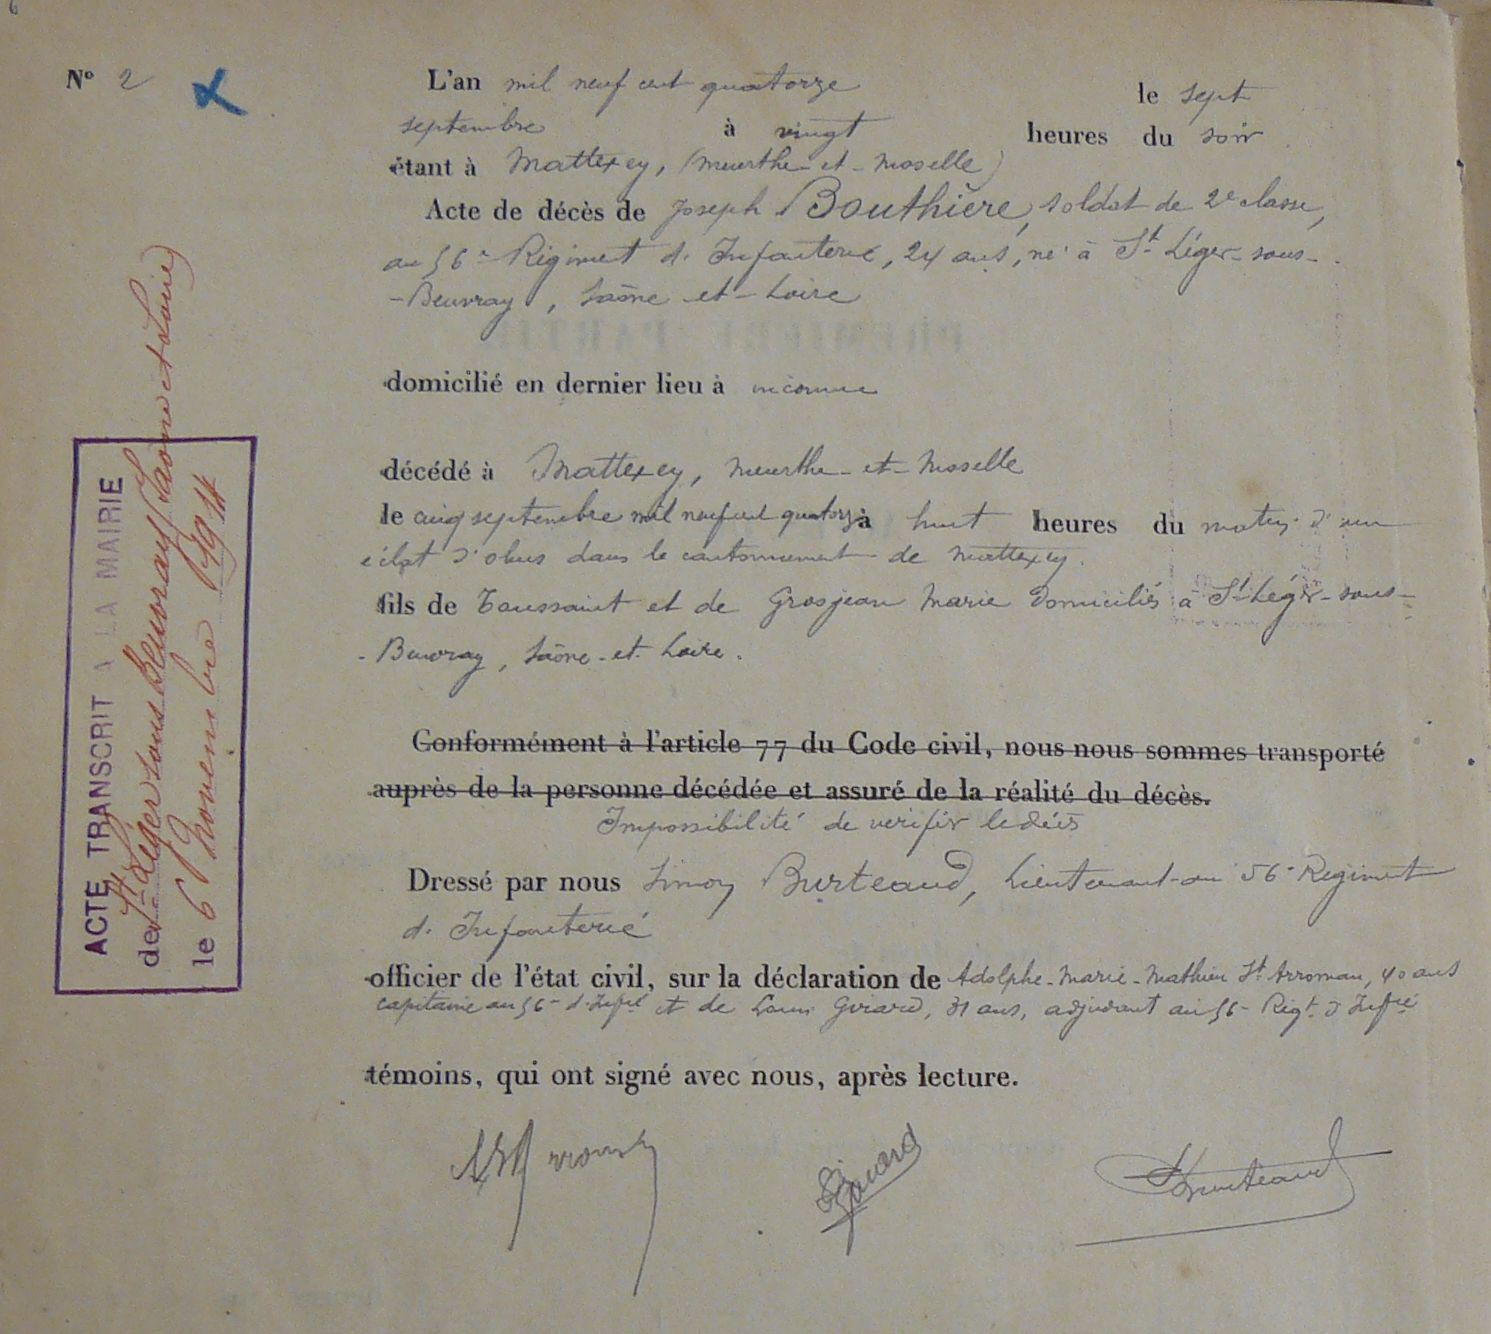 N° 2
L'an mil neuf cent quatorze le sept
septembre à vingt heures du soir
étant à Mattexey, (Meurthe-et-Moselle)
Acte de décès de Joseph Bouthière, soldat de 2e classe,
au 56e Régiment d'Infanterie, 24 ans, né à St Léger-sous-
-Beuvray, Saône-et-Loire
domicilié en dernier lieu à inconnu
décédé à Mattexey, Meurthe-et-Moselle
le cinq septembre mil neuf cent quatorze à huit heures du matin d'un
éclat d'obus dans le cantonnement de Mattexey.
fils de Toussaint et de Grosjean Marie domiciliés à St-Léger-sous-
-Beuvray, Saône-et-Loire.
Conformément à l'article 77 du Code civil, nous nous sommes transporté
auprès de la personne décédée et assuré de la réalité du décès.
Impossibilité de vérifier le décès
Dressé par nous Simon Burteaud, Lieutenant au 56e Régiment
d'Infanterie
officier de l'état civil, sur la déclaration de Adolphe-Marie-Mathieu St Arroman, 40 ans
capitaine au 56e d'Inf.ie et de Louis Girard, 31 ans, adjudant au 56e Rég.t d'Inf.ie
témoins, qui ont signé avec nous, après lecture.
ACTE TRANSCRIT A LA MAIRIE
de St Léger sous Beuvray (Saône et Loire)
le 6 Novembre 1914